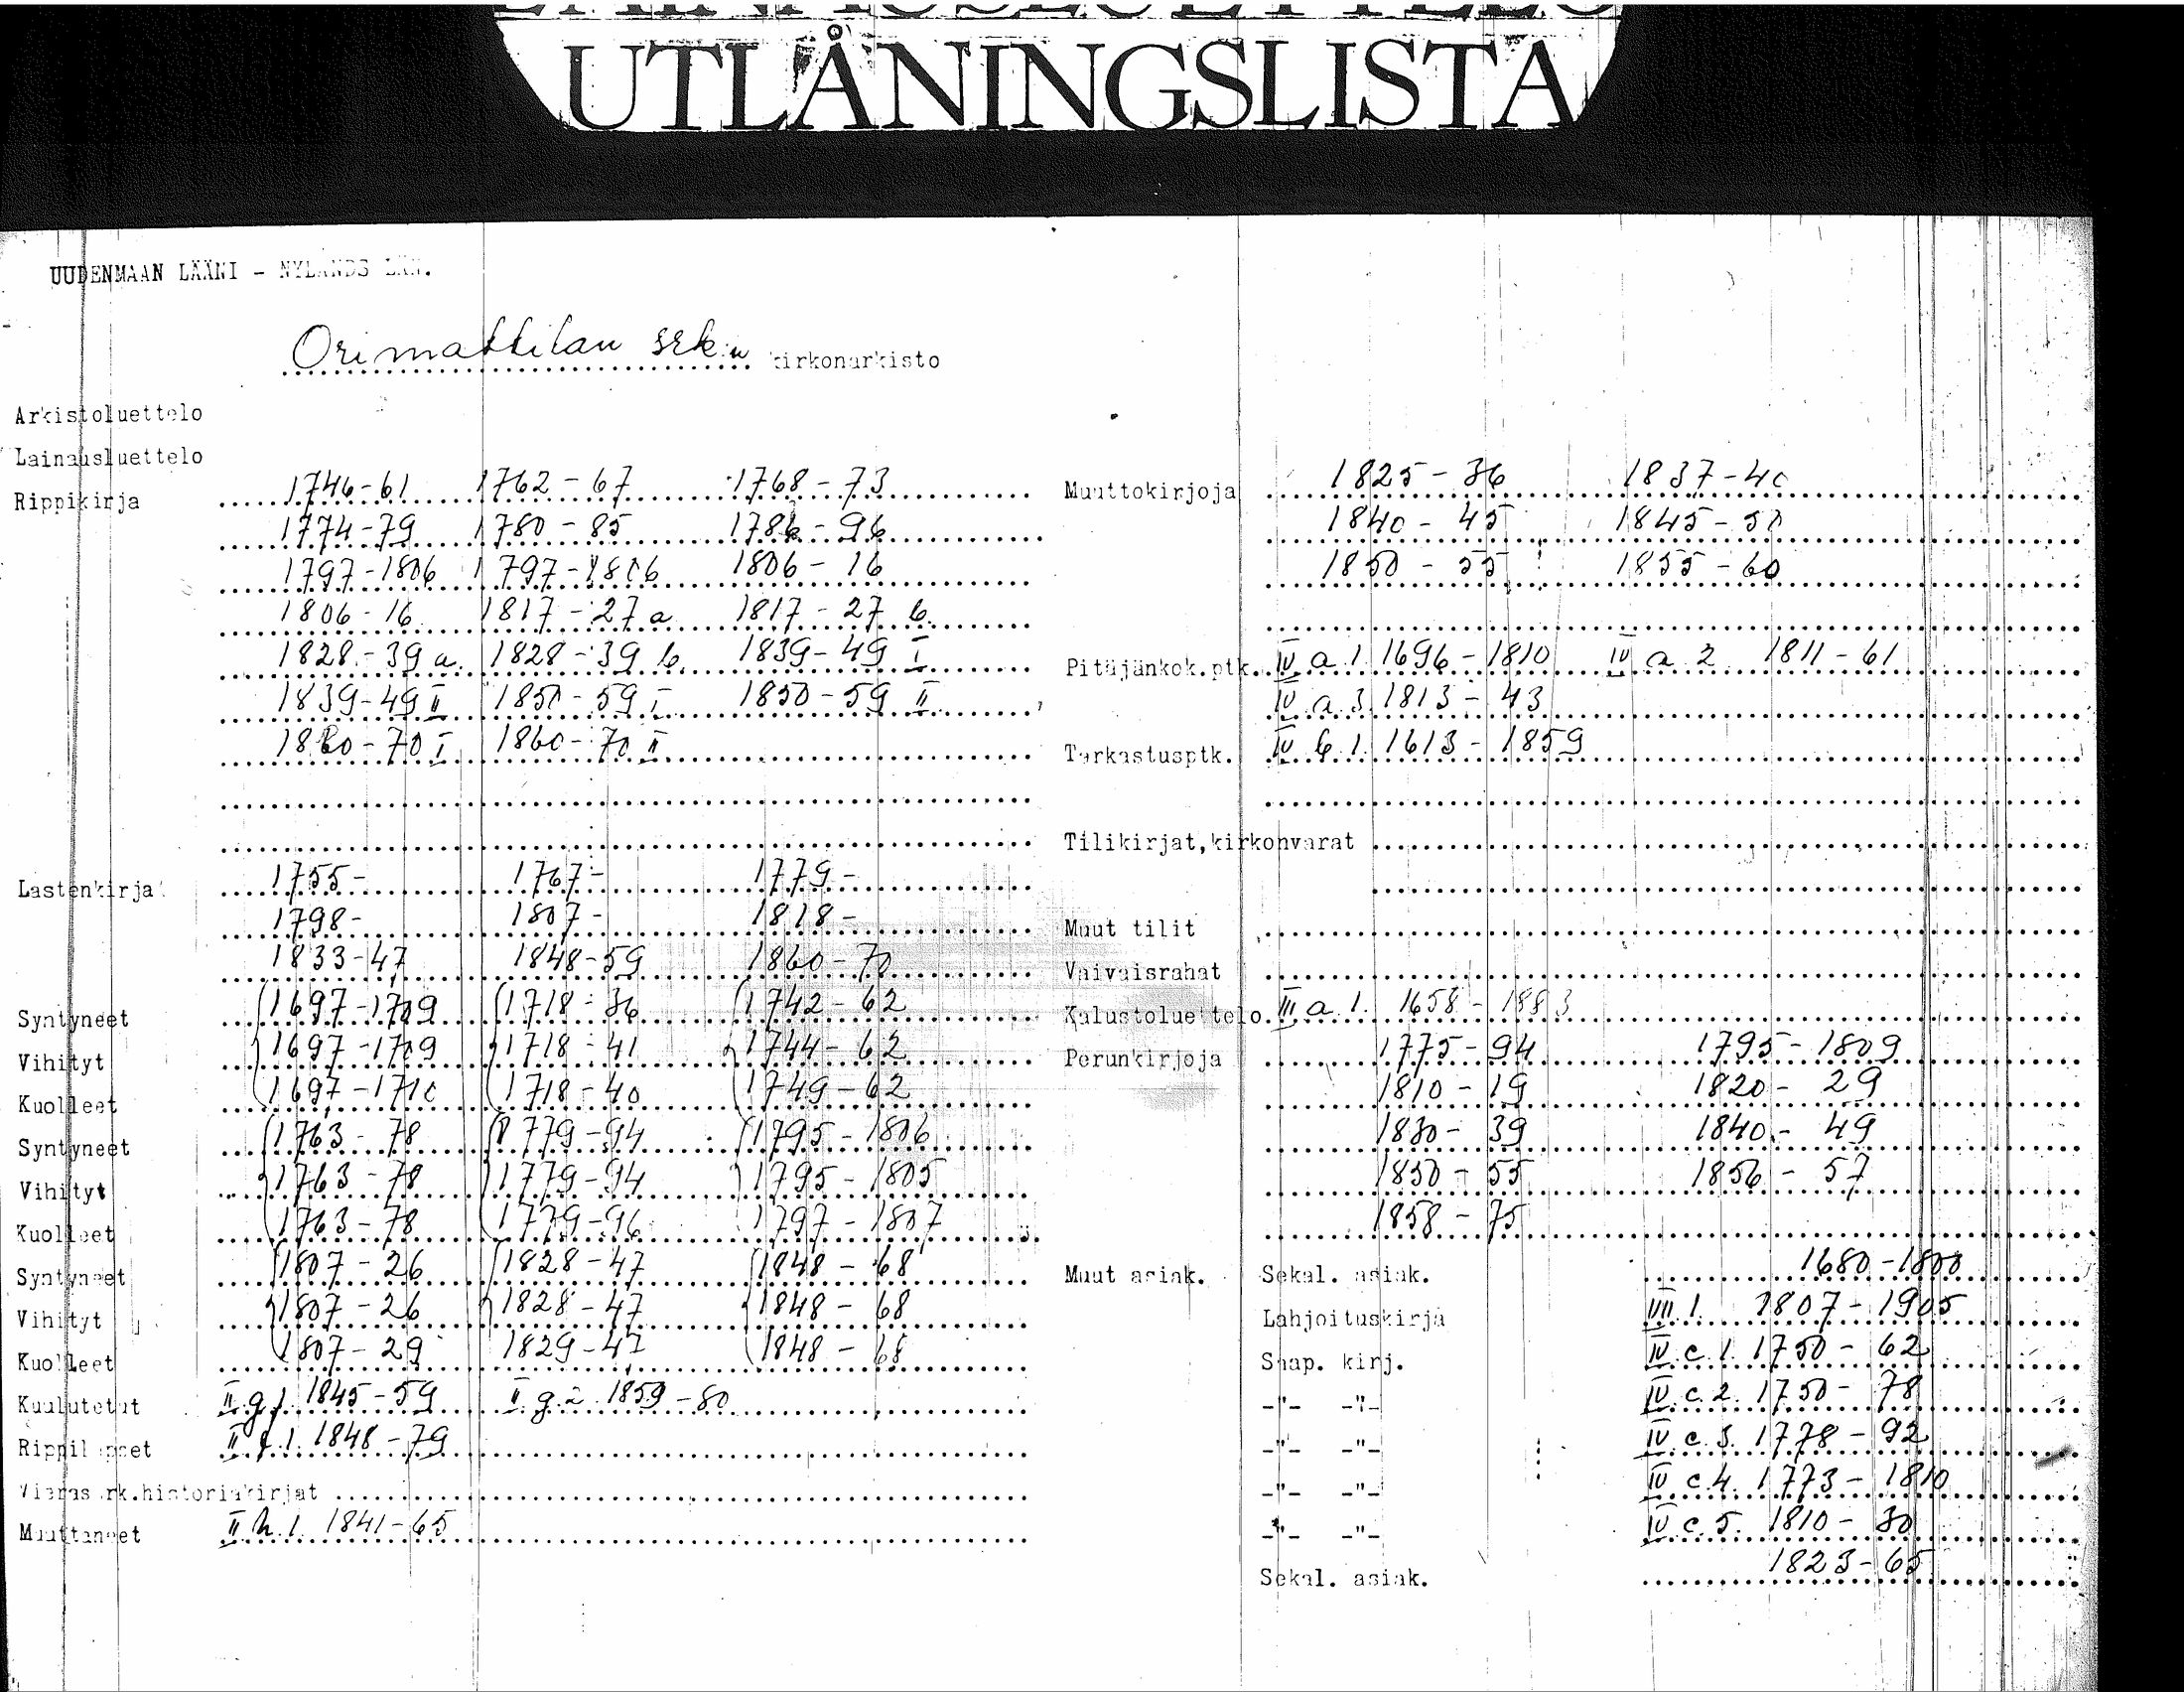 UTLÅNINGSLISTA
UUDENMAAN LÄÄNI - NYLANDS LÄN.
Orimattilan srk:n kirkonarkisto
Arkistoluettelo
Lainausluettelo
Rippikirja 1746-61 1762-67 1768-73
1774-79 1780-85 1786-96
1797-1806 1797-1806 1806-16
1806-16 1817-27 a 1817-27 b
1828-39 a 1828-39 b 1839-49 I
1839-49 II 1850-59 I 1850-59 II
1860-70 I 1860-70 II
Lastenkirjat 1755- 1767- 1779-
1798- 1807- 1818-
1833-47 1848-59 1860-70
Syntyneet 1697-1709 1718-36 1742-62
Vihityt 1697-1709 1718-41 1744-62
Kuolleet 1697-1710 1718-40 1749-62
Syntyneet 1763-78 1779-94 1795-1806
Vihityt 1763-78 1779-94 1795-1805
Kuolleet 1763-78 1779-96 1797-1807
Syntyneet 1807-26 1828-47 1848-68
Vihityt 1807-26 1828-47 1848-68
Kuolleet 1807-29 1829-47 1848-68
Kuulutetut II g 1. 1845-59 II g 2 1859-80
Rippilapset II f. 1. 1848-79
Vieras srk.historiakirjat
Muuttaneet II h. 1. 1841-65
Muuttokirjoja 1825-36 1837-40
1840-45 1845-50
1850-55 1855-60
Pitäjänkok.ptk. IV a 1. 1696-1810 IV a 2 1811-61
IV a 3 1813-43
Tarkastusptk. IV b 1. 1613-1859
Tilikirjat,kirkonvarat
Muut tilit
Vaivaisrahat
Kalustoluettelo III a 1. 1658-1883
Perunkirjoja 1775-94 1795-1809
1810-19 1820-29
1830-39 1840-49
1850-55 1856-57
1858-75
Muut asiak. Sekal. asiak. 1680-1800
Lahjoituskirja VII 1. 1807-1905
Saap. kirj. IV c. 1. 1750-62
-"- -"- IV c. 2. 1750-78
-"- -"- IV c. 3. 1778-92
-"- -"- IV c. 4. 1773-1810
-"- -"- IV c. 5. 1810-30
Sekal. asiak. 1823-65